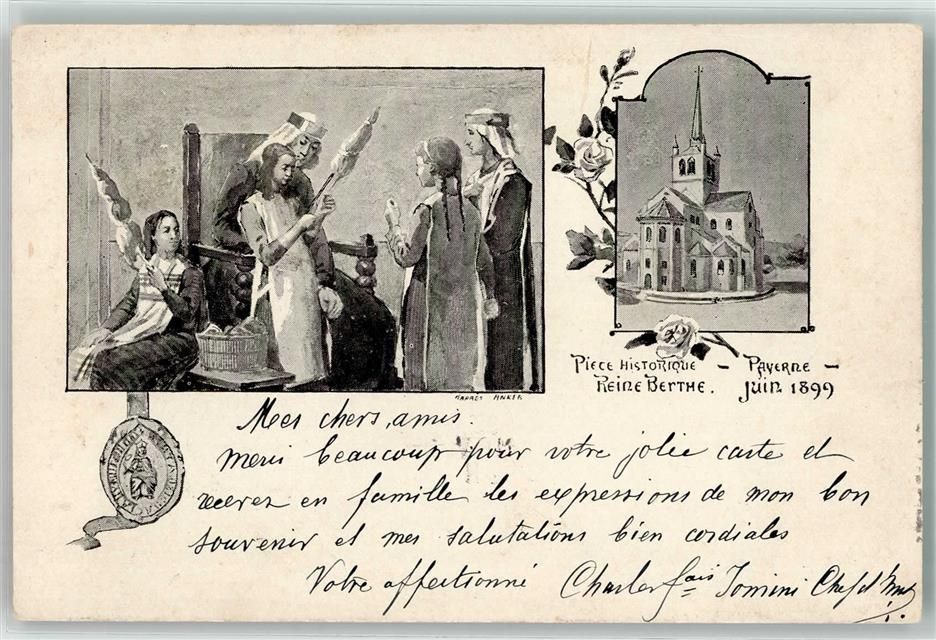 D'APRÈS ANKER
Pièce Historique – Payerne –
Reine Berthe. Juin 1899
Mes chers amis.
Merci beaucoup pour votre jolie carte et
recevez en famille les expressions de mon bon
souvenir et mes salutations bien cordiales
Votre affectionné Charles fçais Jomini Chef d'